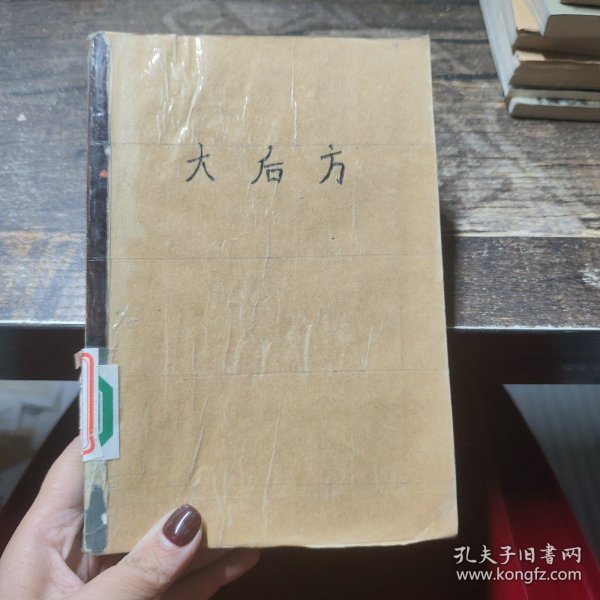 大后方
孔夫子旧書网
www.kongfz.com